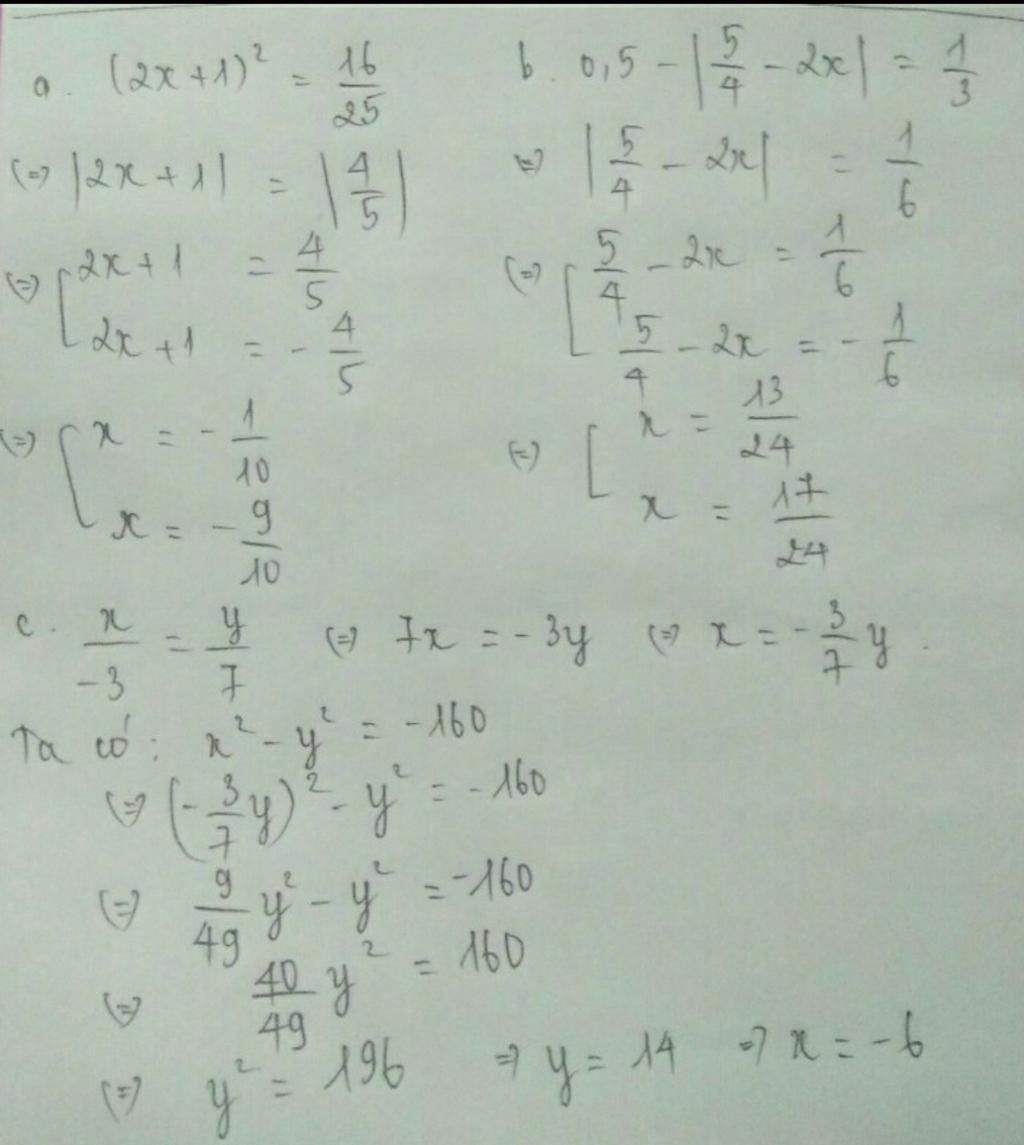 a. (2x+1)² = 16/25
(=) |2x+1| = |4/5|
(=) [ 2x+1 = 4/5
2x+1 = - 4/5
(=) [ x = - 1/10
x = - 9/10
b. 0,5 - |5/4 - 2x| = 1/3
(=) |5/4 - 2x| = 1/6
(=) [ 5/4 - 2x = 1/6
5/4 - 2x = - 1/6
(=) [ x = 13/24
x = 17/24
c. x/-3 = y/7 (=) 7x = -3y (=) x = - 3/7 y.
Ta có: x² - y² = -160
(=) (- 3/7 y)² - y² = -160
(=) 9/49 y² - y² = -160
(=) 40/49 y² = 160
(=) y² = 196 => y = 14 => x = -6